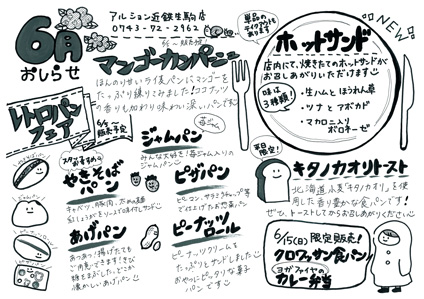 6月
おしらせ
アルション近鉄生駒店
0743-72-2962
マンゴーカンパーニュ
ほんのり甘いライ麦パンにマンゴーを
たっぷり練りこみました！ココナッツ
の香りも加わり味わい深いパンです
レトロパン
フェア
6/5
販売予定
スタッフおすすめ
やきそば
パン
キャベツ、豚肉、太めの麺
紅しょうがとソースで味付しサンド
あげパン
あつあつ！揚げたても
ご用意できます！きび
糖をまぶした、どこか
懐かしいあげパン
ジャムパン
苺ジャム
みんな大好き！苺ジャム入りの
ジャムパンです
ピザパン
ピーマン、サラミ、チップ等
で仕上げたお惣菜パン
ピーナッツ
ロール
ピーナッツクリームを
たっぷりとサンドしました
おやつにピッタリな菓子
パンです
単品の
NEW
ホットサンド
店内にて、焼きたてのホットサンドが
お召しあがりいただけます
味は
3種類！
・生ハムとほうれん草
・ツナとアボカド
・マカロニ入り
ボロネーゼ
平日限定！
キタノカオリトースト
北海道小麦「キタノカオリ」を使
用した香り豊かな食パンです！
ぜひ、トーストしてからお召しあがりください
6/15(日)限定販売！
クロワッサン食パン
ヨガファイヤの
カレー弁当